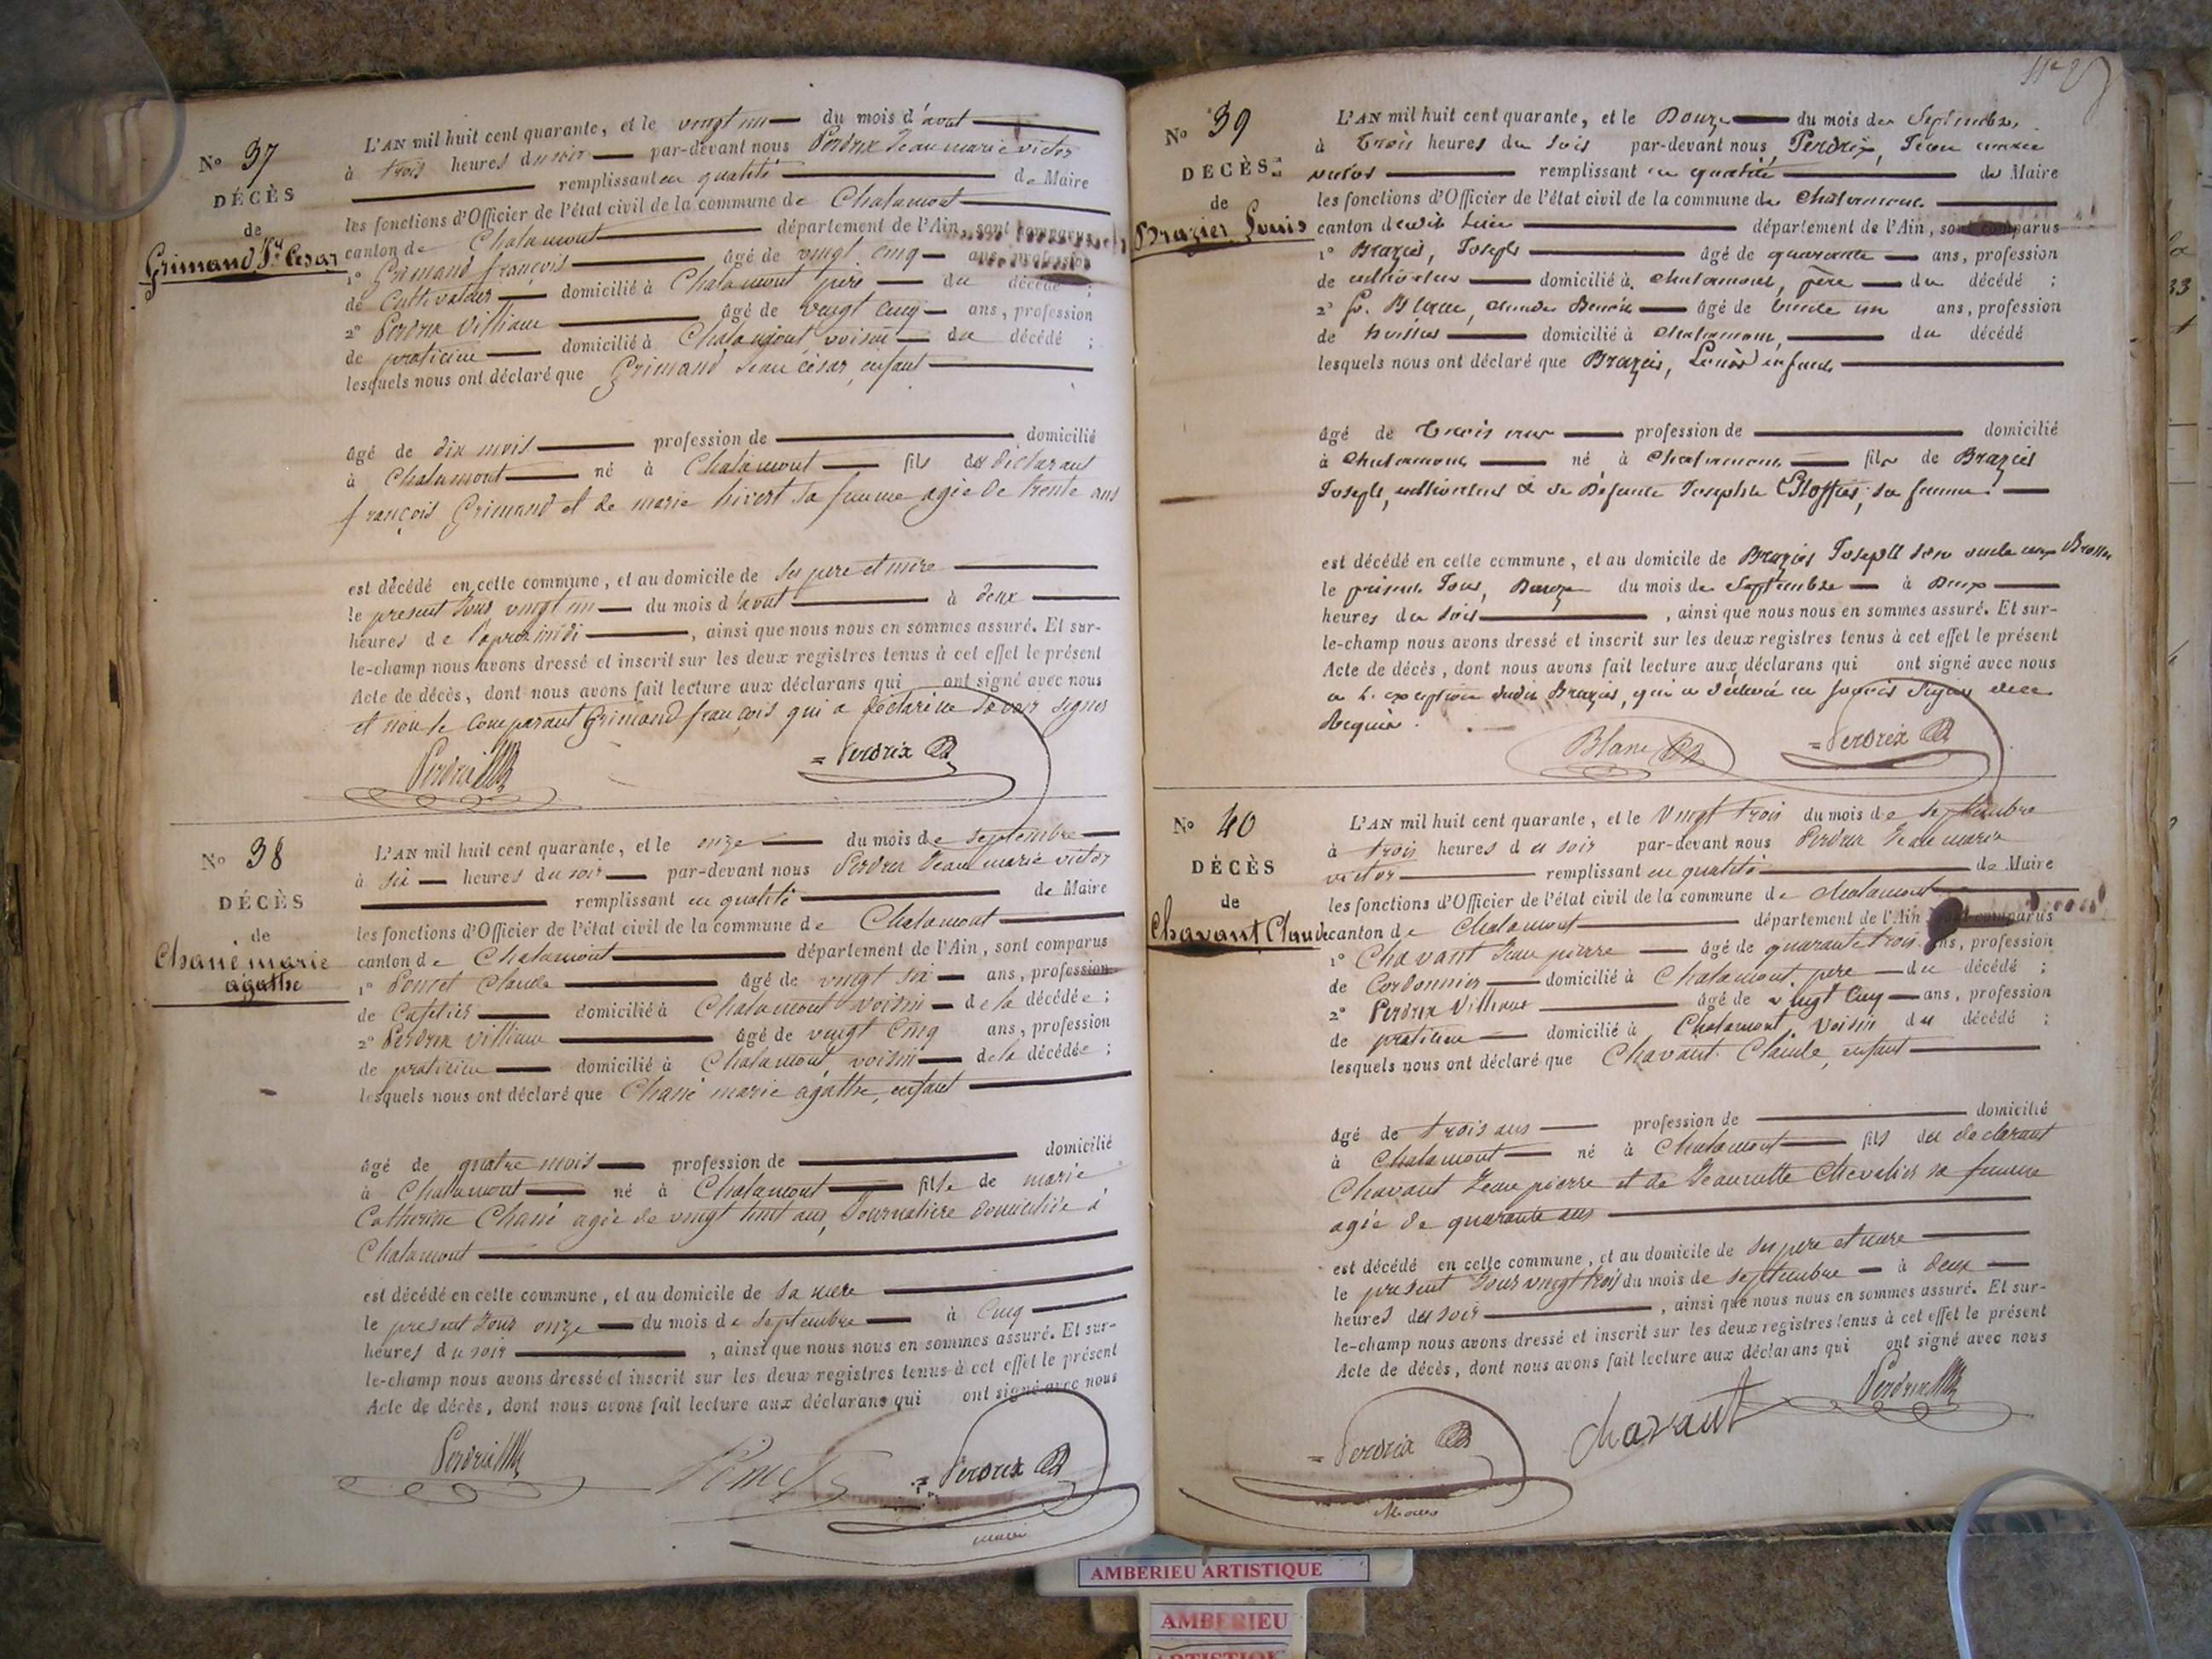 N.o 37
DÉCÈS
de
Grimand J.n Cesar
L'AN mil huit cent quarante, et le vingt un du mois d'avout
à trois heures du soir par-devant nous Perdrix Jean marie victor
remplissant en qualité de Maire
les fonctions d'Officier de l'état civil de la commune de Chalamont
canton de Chalamont département de l'Ain, sont comparus
1.o Grimand françois âgé de vingt cinq ans, profession
de Cultivateur domicilié à Chalamont père du décédé ;
2.o Perdrix Villiam âgé de vingt cinq ans, profession
de praticien domicilié à Chalamont voisin du décédé ;
lesquels nous ont déclaré que Grimand Jean césar, enfant
âgé de dix mois profession de domicilié
à Chalamont né à Chalamont fils du déclarant
françois Grimand et de marie hivert sa femme agée de trente ans
est décédé en cette commune, et au domicile de ses pere et mere
le present Jour vingt un du mois d'avout à deux
heures de l'apres midi , ainsi que nous nous en sommes assuré. Et sur-
le-champ nous avons dressé et inscrit sur les deux registres tenus à cet effet le présent
Acte de décès, dont nous avons fait lecture aux déclarans qui ont signé avec nous
et non le comparant Grimand françois qui a déclaré ne savoir signer
Perdrix
Perdrix
N.o 38
DÉCÈS
de
Chané marie
agathe
L'AN mil huit cent quarante, et le onze du mois de septembre
à six heures du soir par-devant nous Perdrix Jean marie victor
remplissant en qualité de Maire
les fonctions d'Officier de l'état civil de la commune de Chalamont
canton de Chalamont département de l'Ain, sont comparus
1.o Poncet Claude âgé de vingt six ans, profession
de Cafetier domicilié à Chalamont voisin de la décédée ;
2.o Perdrix Villiam âgé de vingt cinq ans, profession
de praticien domicilié à Chalamont, voisin de la décédée ;
lesquels nous ont déclaré que Chané marie agathe, enfant
âgé de quatre mois profession de domicilié
à Chalamont né à Chalamont fille de marie
Catherine Chané agée de vingt huit ans, Journaliere domiciliée à
Chalamont
est décédé en cette commune, et au domicile de sa mere
le present Jour onze du mois de septembre à Cinq
heures du soir , ainsi que nous nous en sommes assuré. Et sur-
le-champ nous avons dressé et inscrit sur les deux registres tenus à cet effet le présent
Acte de décès, dont nous avons fait lecture aux déclarans qui ont signé avec nous
Perdrix
Poncet
Perdrix
maire
N.o 39
DÉCÈS
de
Brazier Louis
L'AN mil huit cent quarante, et le Douze du mois de Septembre,
à Trois heures du soir par-devant nous, Perdrix, Jean marie
victor remplissant en qualité de Maire
les fonctions d'Officier de l'état civil de la commune de Chalamont
canton dudit lieu département de l'Ain, sont comparus
1.o Brazier, Joseph âgé de quarante ans, profession
de cultivateur domicilié à Chalamont, père du décédé ;
2.o Blanc, Claude Benoit âgé de trente un ans, profession
de huissier domicilié à Chalamont, du décédé
lesquels nous ont déclaré que Brazier, Louis enfant
âgé de Trois ans profession de domicilié
à Chalamont né à Chalamont fils de Brazier
Joseph, cultivateur & de Défunte Josephte sa femme.
est décédé en cette commune, et au domicile de Brazier Joseph son
le présent Jour, Douze du mois de Septembre à Deux
heures du soir , ainsi que nous nous en sommes assuré. Et sur-
le-champ nous avons dressé et inscrit sur les deux registres tenus à cet effet le présent
Acte de décès, dont nous avons fait lecture aux déclarans qui ont signé avec nous
a l'exception dudit Brazier, qui a déclaré ne savoir signer de ce
Requis.
Blanc
Perdrix
N.o 40
DÉCÈS
de
Chavant Claude
L'AN mil huit cent quarante, et le vingt trois du mois de septembre
à trois heures du soir par-devant nous Perdrix Jean marie
victor remplissant en qualité de Maire
les fonctions d'Officier de l'état civil de la commune de chalamont
canton de Chalamont département de l'Ain sont comparus
1.o Chavant Jean pierre âgé de quarante trois ans, profession
de Cordonnier domicilié à Chalamont, pere du décédé ;
2.o Perdrix Villiam âgé de vingt cinq ans, profession
de praticien domicilié à Chalamont, voisin du décédé ;
lesquels nous ont déclaré que Chavant Claude, enfant
âgé de trois ans profession de domicilié
à Chalamont né à Chalamont fils du declarant
Chavant Jean pierre et de Jeannette Chevalier sa femme
agée de quarante ans
est décédé en cette commune, et au domicile de ses pere et mere
le present Jour vingt trois du mois de septembre à deux
heures du soir , ainsi que nous nous en sommes assuré. Et sur-
le-champ nous avons dressé et inscrit sur les deux registres tenus à cet effet le présent
Acte de décès, dont nous avons fait lecture aux déclarans qui ont signé avec nous
Perdrix
Chavant
Perdrix
AMBERIEU ARTISTIQUE
AMBERIEU
ARTISTIQUE